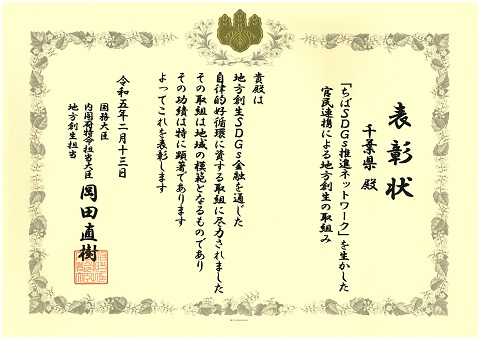 表彰状
千葉県 殿
「ちばSDGs推進ネットワーク」を生かした
官民連携による地方創生の取組み
貴殿は
地方創生SDGs金融を通じた
自律的好循環に資する取組に尽力されました
その取組は地域の模範となるものであり
その功績は特に顕著であります
よってこれを表彰します
令和五年二月十三日
国務大臣
内閣府特命担当大臣
地方創生担当
岡田直樹